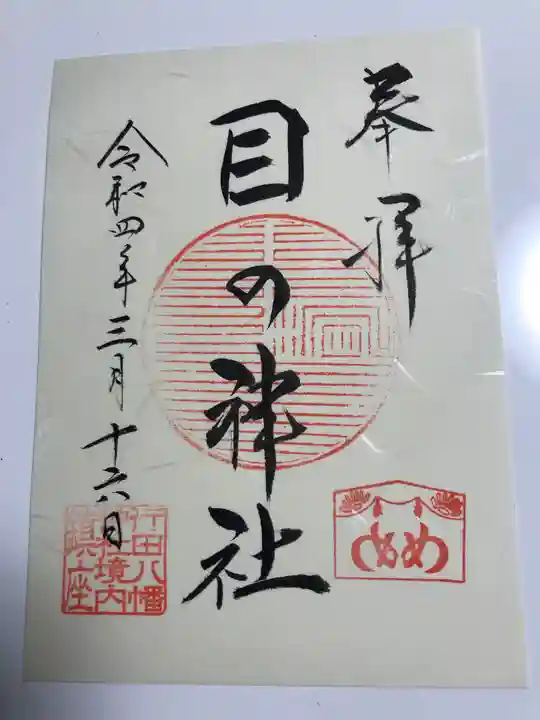 奉拝
目の神社
令和四年三月十六日
行田八幡
境内
座
めめ